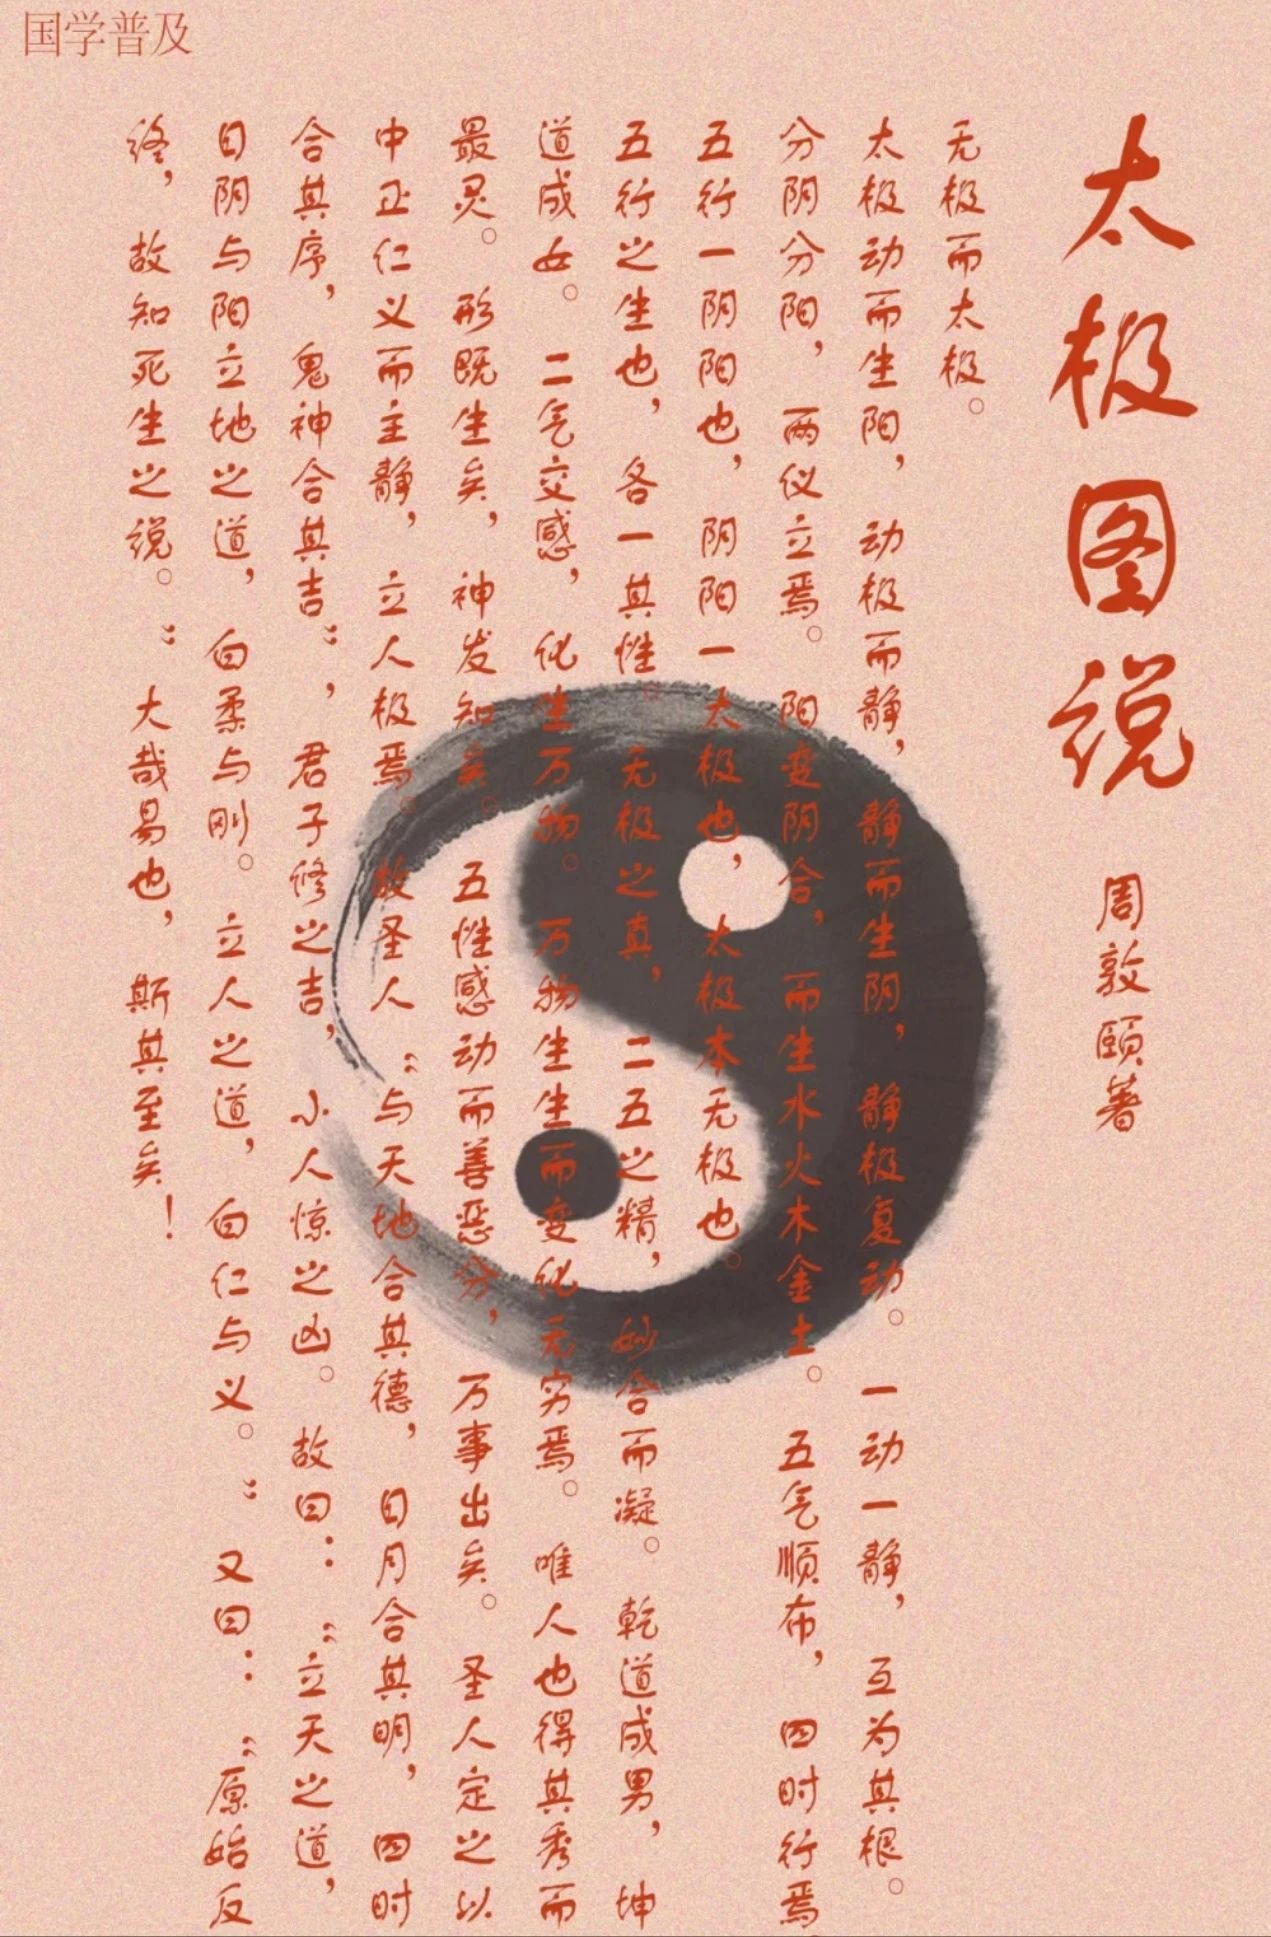 国学普及
太极图说 周敦颐著
无极而太极。
太极动而生阳，动极而静，静而生阴，静极复动。一动一静，互为其根。
分阴分阳，两仪立焉。阳变阴合，而生水火木金土。五气顺布，四时行焉
五行一阴阳也，阴阳一太极也，太极本无极也。
五行之生也，各一其性。无极之真，二五之精，妙合而凝。乾道成男，坤
道成女。二气交感，化生万物。万物生生而变化无穷焉。唯人也得其秀而
最灵。形既生矣，神发知矣。五性感动而善恶分，万事出矣。圣人定之以
中正仁义而主静，立人极焉。故圣人“与天地合其德，日月合其明，四时
合其序，鬼神合其吉”，君子修之吉，小人惊之凶。故曰：“立天之道，
日阴与阳立地之道，白柔与刚。立人之道，白仁与义。”又曰：“原始反
终，故知死生之说。”大哉易也，斯其至矣！